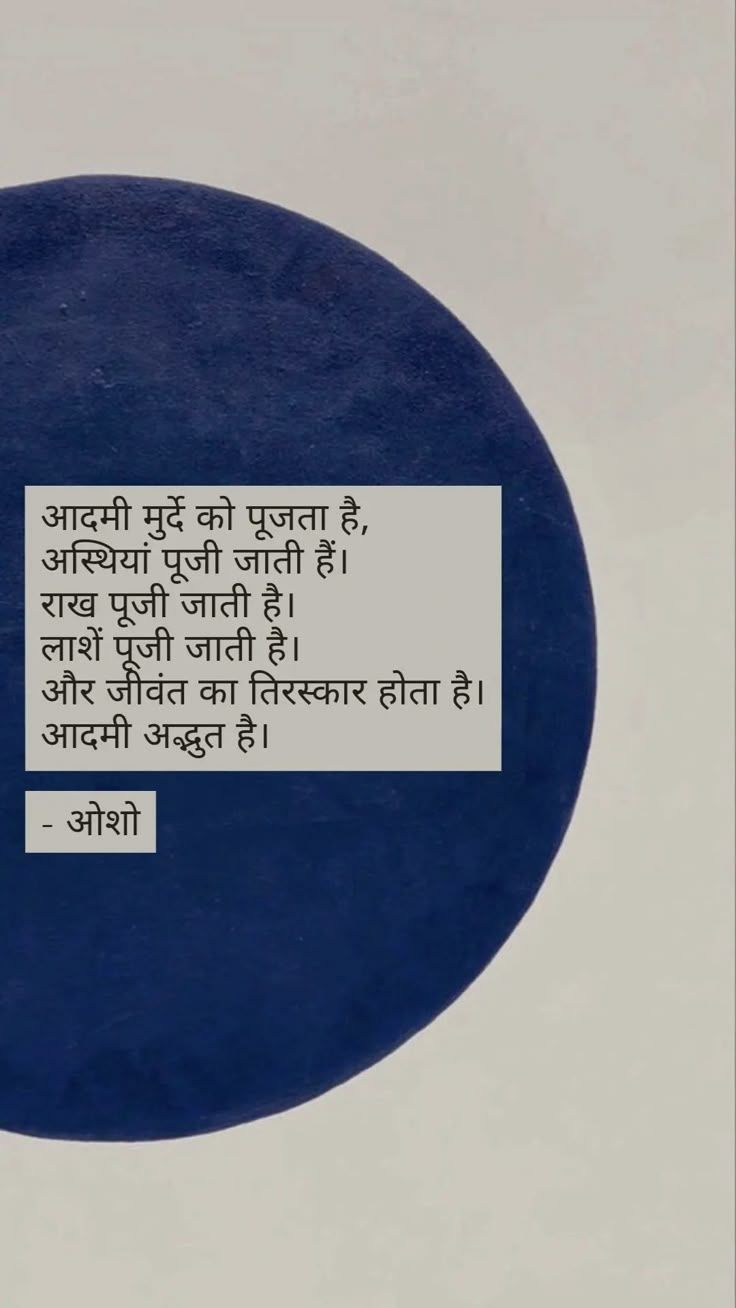 आदमी मुर्दे को पूजता है,
अस्थियां पूजी जाती हैं।
राख पूजी जाती है।
लाशें पूजी जाती है।
और जीवंत का तिरस्कार होता है।
आदमी अद्भुत है।
- ओशो